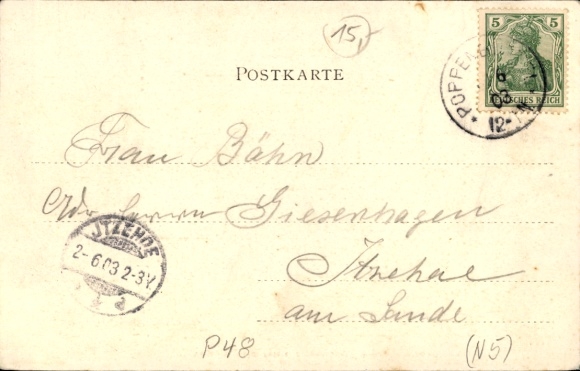 15,-
5 5
DEUTSCHES REICH
POSTKARTE
03
12-
Frau Bähn
Adr. Herrn Giesenhagen
Itzehoe
am Sande
ITZEHOE
2-6.03 2-3V
P48
(N5)